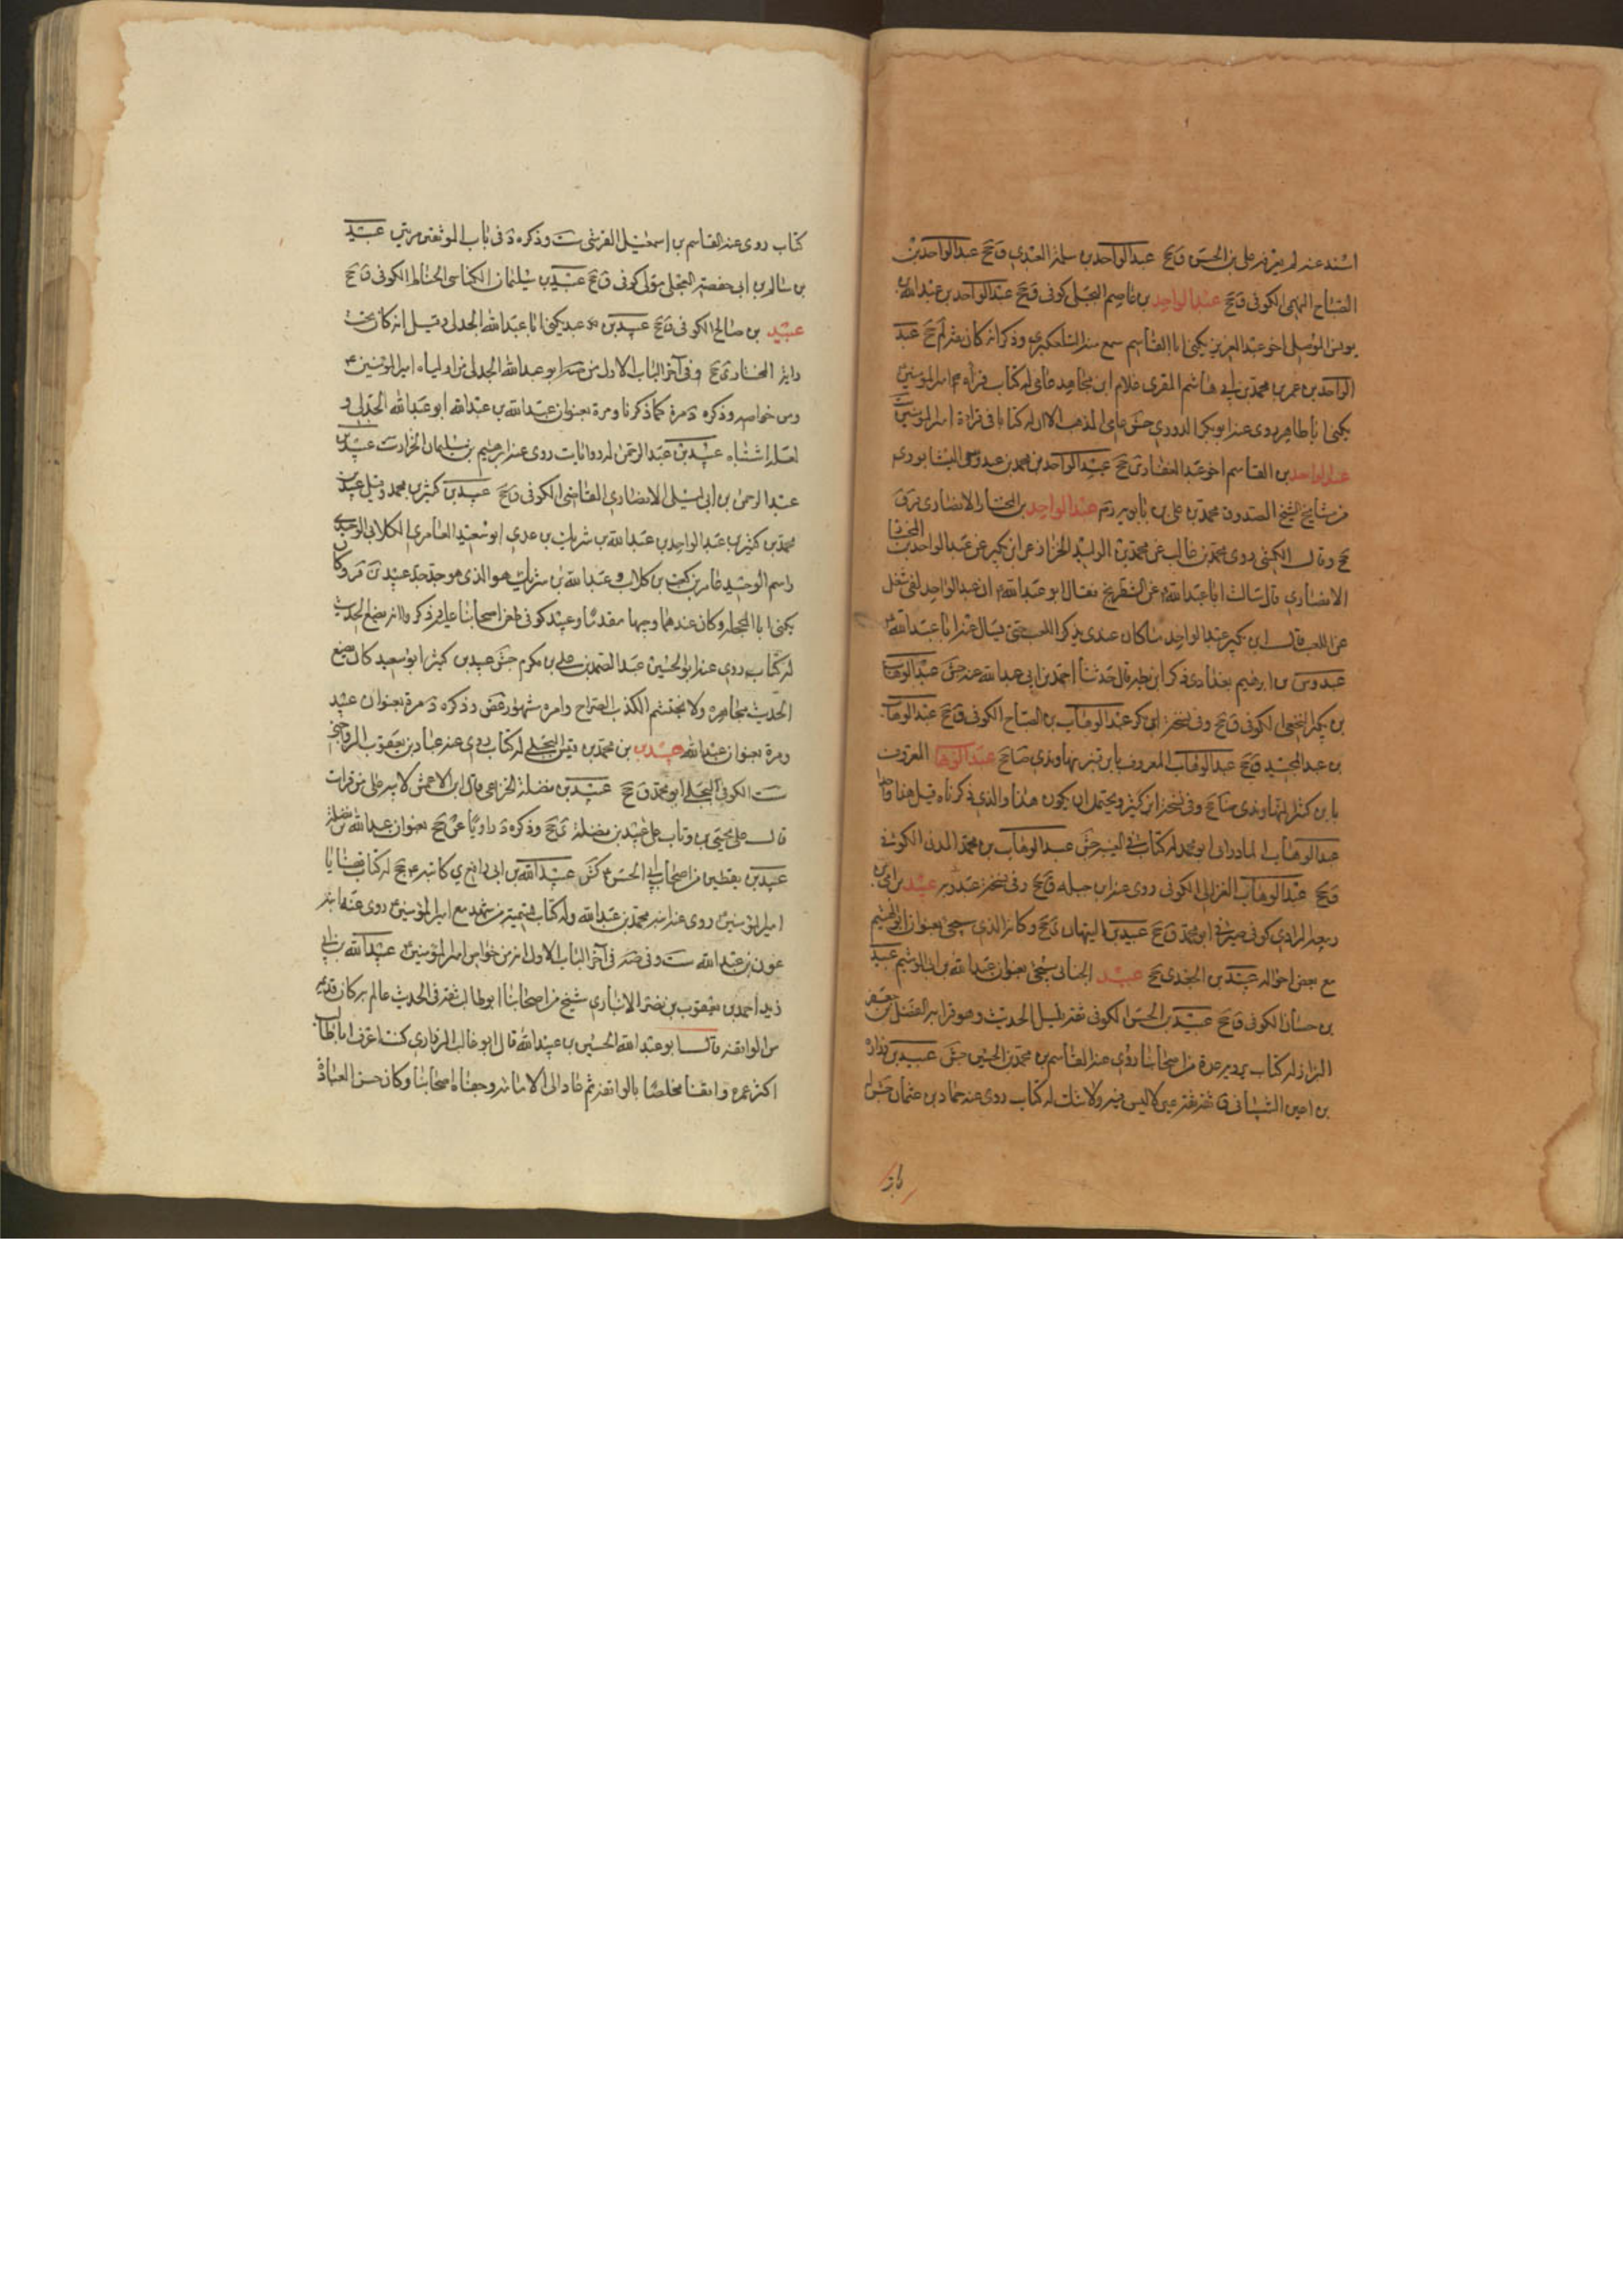 اسند عنه لم يعرفه علي بن الحسن ق جخ عبد الواحد بن سلمة العبدي ق جخ عبد الواحد بن
الصباح الكوفي ق جخ عبد الواحد بن عاصم البجلي كوفي ق جخ عبد الواحد بن عبد الله بن
يونس الموصلي اخو عبد العزيز يكنى ابا القاسم سمع منه التلعكبري وذكر انه كان ثقة لم جخ عبد
الواحد بن عمر بن محمد بن ابي هاشم المقرى غلام ابن مجاهد عامي له كتاب قراءة امير المؤمنين
يكنى ابا طاهر روى عنه ابو بكر الدوري جش عامي المذهب الا ان له كتابا في قراءة امير المؤمنين
عبد الواحد بن القاسم اخو عبد الغفار ق جخ عبد الواحد بن محمد بن عبدوس النيشابوري
من مشايخ الشيخ الصدوق محمد بن علي بن بابويه عبد الواحد بن المختار الانصاري قر ق
جخ وقال الكشي روى محمد بن غالب عن محمد بن الوليد الخزاز عن ابن بكير عن عبد الواحد بن المختار
الانصاري قال سالت ابا عبد الله عن الشطرنج فقال ابو عبد الله ان عبد الواحد لفي شغل
عن اللعب قال ابن بكير عبد الواحد ما كان عندي يذكر اللعب حتى يسال عنه ابا عبد الله
عبدوس بن ابرهيم بغدادي ذكر ابن بطة قال حدثنا احمد بن ابي عبد الله عنه جش عبد الوهاب
بن بكر النخعي الكوفي ق جخ وفي نسخة ابن بكير عبد الوهاب بن الصباح الكوفي ق جخ عبد الوهاب
بن عبد المجيد ق جخ عبد الوهاب المعروف بابن قنبر نهاوندي ضا جخ عبد الوهاب المعروف
بابن كثير النهاوندي ضا جخ وفي نسخة ابن كثير ويحتمل ان يكون هذا والذي ذكرناه قبل هذا واحدا
عبد الوهاب المادرائي ابو محمد له كتاب في الغيبة جش عبد الوهاب بن محمد المدني الكوفي
ق جخ عبد الوهاب الغزالي الكوفي روى عنه ابن جبلة ق جخ وفي نسخة عبد ربه عبيد بن
المرادي كوفي صيرفي ابو محمد ق جخ عبيد بن التيهان ي جخ وكانه الذي سيجئ بعنوان ابو الهيثم
مع بعض احواله عبيد بن الجعدي ي جخ عبيد سيجئ بعنوان عبد الله بن عبيد
بن حسان الكوفي ق جخ عبيد بن الحسن الكوفي ثقة قليل الحديث وهو قرابة الفضل بن جعفر
البزاز له كتاب يرويه عدة من اصحابنا روى عنه القاسم بن محمد بن الحسين جش عبيد بن زرارة
بن اعين الشيباني ق ثقة ثقة عين لا لبس فيه ولا شك له كتاب روى عنه حماد بن عثمان جش له
كتاب روى عنه القاسم بن اسمعيل القرشي ست وذكره د في باب الموثقين مرتين عبيد
بن سالم بن ابي حفصة العجلي مولى كوفي ق جخ عبيد بن سليمان الكوفي ق جخ
عبيد بن صالح الكوفي ق جخ عبيد بن عبد يكنى ابا عبد الله الجدلي وقيل انه كان تحت
راية المختار ي جخ وفي آخر الباب الاول من صه ابو عبد الله الجدلي من اولياء امير المؤمنين
ومن خواصه وذكره د مرة كما ذكرنا ومرة بعنوان عبيد الله بن عبد الله ابو عبد الله الجدلي و
لعله اشتباه عبيد بن عبد الرحمن له روايات روى عنه ابرهيم بن سليمان الخزاز ست عبيد بن
عبد الرحمن بن ابي ليلى الانصاري القاضي الكوفي ق جخ عبيد بن كثير بن محمد وقيل عبيد بن
محمد بن كثير بن عبد الواحد بن عبد الله بن شريك بن عدي ابو سعيد العامري الكلابي الوحيدي
واسم الوحيد عامر بن كعب بن كلاب وعبد الله بن شريك هو الذي هو جد جد عبيد وكان
يكنى ابا المحجل وكان عندهما وجيها مقدما وعبيد كوفي طعن اصحابنا عليه وذكروا انه يضع الحديث
له كتاب روى عنه ابو الحسين عبد الصمد بن علي بن مكرم جش عبيد بن كثير ابو سعيد كان يضع
الحديث مجاهرة ولا يحتشم الكذب الصراح وامره مشهور غض وذكره د مرة بعنوان عبيد
ومرة بعنوان عبيد الله عبيد بن محمد بن قيس البجلي له كتاب روى عنه عباد بن يعقوب الرواجني
ست الكوفي البجلي ابو محمد ق جخ عبيد بن نضلة الخزاعي قال ابن الاعمش لابيه على من قرات
قال على يحيى بن وثاب على عبيد بن نضلة ي جخ وذكره د راويا عن جخ بعنوان عبد الله بن نضلة
عبيد بن يقطين من اصحاب ابي الحسن كش عبيد الله بن ابي رافع ي كاتبه ع جخ له كتاب قضايا
امير المؤمنين روى عنه ابنه محمد بن عبيد الله وله كتاب تسمية من شهد مع امير المؤمنين روى عنه ابنه
عون بن عبيد الله ست وفي صه في آخر الباب الاول انه من خواص امير المؤمنين عبيد الله بن ابي
زيد احمد بن يعقوب بن نصر الانباري شيخ من اصحابنا ابو طالب ثقة في الحديث عالم به كان قديما
من الواقفة قال ابو عبد الله الحسين بن عبيد الله قال ابو غالب الزراري كنت اعرف ابا طالب
اكثر عمره واقفا مختلطا بالواقفة ثم عاد الى الامامة وجفاه اصحابنا وكان حسن العبادة